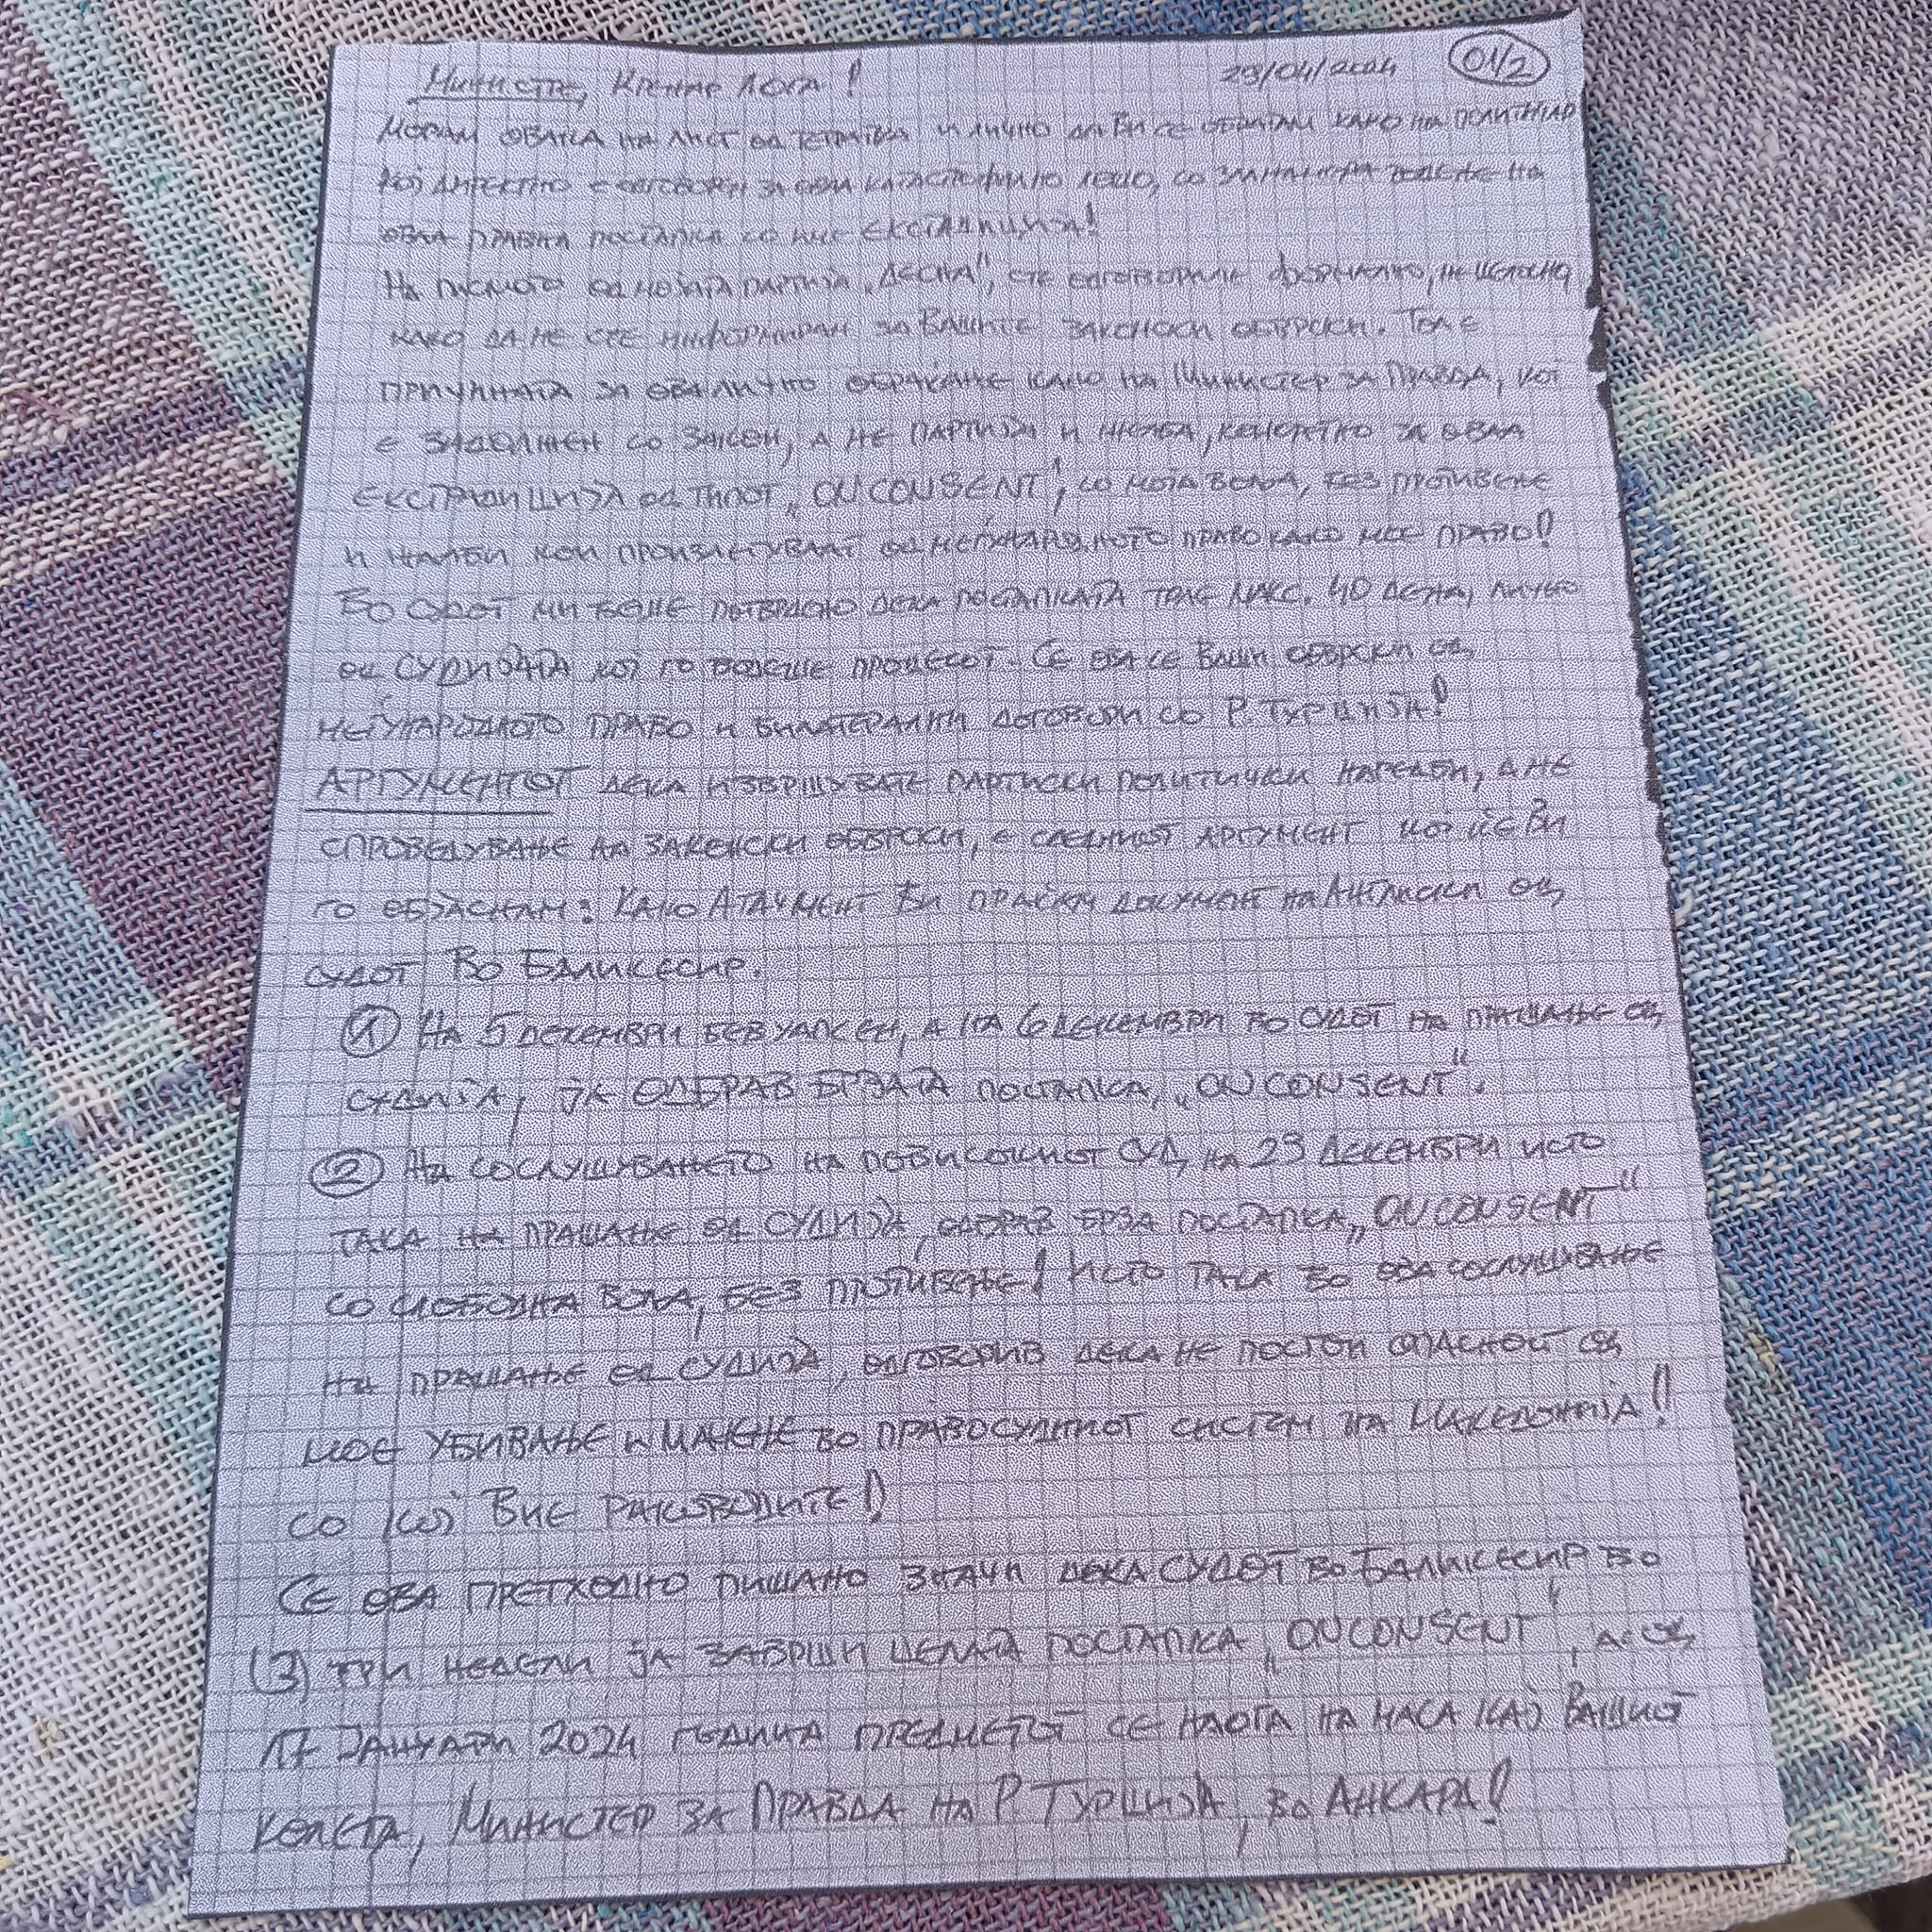 Министре, Кренар Лога! 29/04/2024 01/2
Морам овака на лист од тетратка и лично да Ви се обратам како на политичар
кој директно е одговорен за ова катастрофално лошо, со
оваа правна постапка со мне екстрадиција!
На писмото од мојата партија „Десна", сте одговориле формално, не целосно
како да не сте информиран за Вашите законски обврски. Тоа е
причината за ова лично обраќање како на Министер за Правда, кој
е задолжен со закон, а не партија и нжлба, конкретно за оваа
екстрадиција од типот „ON CONSENT", со моја волја, без противење
и жалби кои произлегуваат од меѓународното право како мое право!
Во судот ми беше потврдено дека постапката трае макс. 40 дена, лично
од судијата кој го водеше процесот. Се ова се Ваши обврски од
меѓународното право и билатерални договори со Р. Турција!
Аргументот дека извршувате партиски политички наредби, а не
спроведување на законски обврски, е следниот аргумент кој ќе Ви
го објаснам: Како атачмент Ви праќам документ на Англиски од
судот во Баликесир.
1 На 5 декември бев уапсен, а на 6 декември во судот на прашање од
судија, ја одбрав брзата постапка, „ON CONSENT".
2 На сослушувањето на повисокиот суд, на 29 декември исто
така на прашање од судија, одбрав брза постапка „ON CONSENT"
со слободна волја, без противење! Исто така во ова сослушување
на прашање од судија, одговорив дека не постои опасност од
мое убивање и мачење во правосудниот систем на Македонија!
со кој Вие раководите!
Се ова претходно пишано значи дека судот во Баликесир во
(3) три недели ја заврши целата постапка „ON CONSENT", а од
17 Јануари 2024 година предметот се наоѓа на маса кај Вашиот
колега, Министер за Правда на Р. Турција, во Анкара!